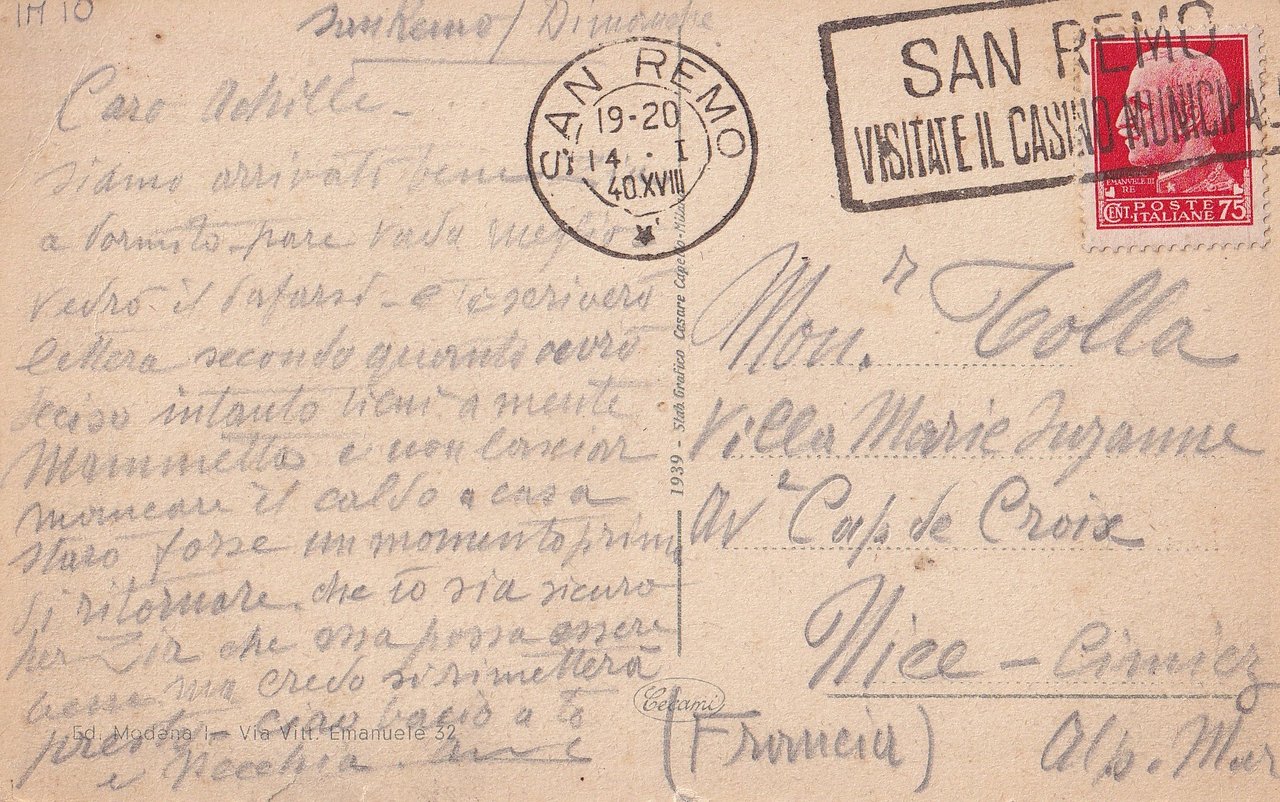 IM 10
San Remo / Dimanche
Caro Achille -
siamo arrivati bene
a dormito - pare vada meglio
vedrò il dafarsi - e ti scriverò
lettera secondo quanto avrò
deciso intanto tieni a mente
Mammetta e non lasciar
mancare il caldo a casa
starò forse un momento prima
di ritornare. che io sia sicuro
per Zia che essa possa essere
bene ma credo si rimetterà
presto ciao bacio a te
e
Ed. Modena I - Via Vitt. Emanuele 32
SAN REMO
19-20
14 · I
40.XVIII
SAN REMO
VISITATE IL CASINO MUNICIPA
EMANUELE III
RE
CENT. POSTE ITALIANE 75
1939 - Stab. Grafico Cesare Capello-Mila
Cecami
Mon.r Tolla
Villa Marie Suzanne
Av.e Cap. de Croix
Nice - Cimiez
(Francia) Alp. Mar